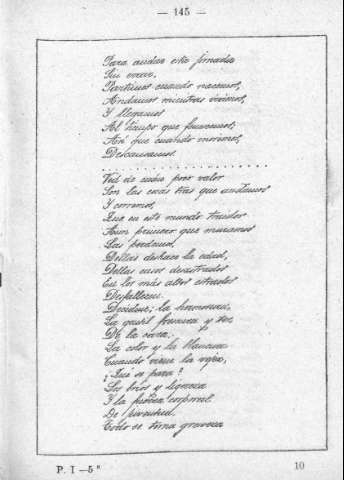 — 145 —
Para andar esta jornada
Sin errar.
Partimos cuando nacemos,
Andamos mientras vivimos,
Y llegamos
Al tiempo que fenecemos;
Así que cuando morimos,
Descansamos.
Ved de cuán poco valor
Son las cosas tras que andamos
Y corremos,
Que en este mundo traidor
Aun primero que muramos
Las perdemos.
Dellas deshace la edad,
Dellas casos desastrados
En los más altos estados
Desfallecen.
Decidme; la hermosura,
La gentil frescura y tez
De la cara,
La color y la blancura
Cuando viene la vejez,
¿Qué se para?
Los bríos y ligereza
Y la fuerza corporal
De juventud,
Todo se torna graveza
P. I —5ª 10